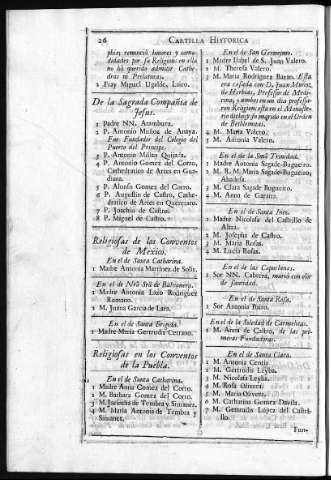 26 CARTILLA HISTORICA
phia; renunciò honores y como-
didades por su Religion: en ella
no ha querido admitir Cathe-
dras ni Prelaturas.
2 Fray Miguel Ugalde, Laico.
De la Sagrada Compañia de
Jesus.
1 Padre NN. Aramburu.
2 P. Antonio Muñoz de Anaya.
Fue Fundador del Colegio del
Puerto del Principe.
3 P. Antonio Molina Quixada.
4 P. Antonio Gomez del Corro,
Cathedratico de Artes en Gua-
diana.
5 P. Alonso Gomez del Corro.
6 P. Augustin de Castro, Cathe-
dratico de Artes en Queretaro.
7 P. Joachin de Castro.
8 P. Miguel de Castro.
Religiosas de los Conventos
de Mexico.
En el de Santa Catharina.
1 Madre Antonia Martinez de Solis.
En el de Nrâ Srâ de Balvanera.
1 Madre Antonia Lino Rodriguez
Romano.
2 M. Juana Garcia de Lara.
En el de Santa Brigida.
1 Madre Maria Gertrudis Cerrano.
Religiosas en los Conventos
de la Puebla.
En el de Santa Catharina.
1 Madre Anna Gomez del Corro.
2 M. Barbara Gomez del Corro.
3 M. Jacinto de Tembra y Simanes.
4 M. Maria Antonia de Tembra y
Simanes.
En el de San Geronimo.
1 Madre Isabel de S. Juan Valero.
2 M. Theresa Valero.
3 M. Maria Rodriguez Bazan. Esta
era casada con D. Juan Muñoz
de Herbas, Professor de Medi-
cina, y ambos en un dia professa-
ron Religion: ella en el Monaste-
rio dicho, y su marido en el Orden
de Bethlemitas.
4 M. Maria Valero.
5 M. Antonia Valero.
En el de la Smâ Trinidad.
1 Madre Antonia Segade Bugueiro.
2 M. R. M. Maria Segade Bugueiro,
Abadesa.
3 M. Clara Sagade Bugueiro.
4 M. Anna de Garaita.
En el de Santa Ines.
1 Madre Nicolasa del Castillo de
Altra.
2 M. Josepha de Castro.
3 M. Maria Rosas.
4 M. Lucia Rosas.
En el de las Capuchinas.
1 Sor NN. Cabrera, muriò con olor
de santidad.
En el de Santa Rosa.
1 Sor Antonia Bueno.
En el de la Soledad de Carmelitas.
1 M. Anna de Castro, de las pri-
meras Fundadoras.
En el de Santa Clara.
1 M. Antonia Centis.
2 M. Gertrudis Leyba.
3 M. Nicolasa Leyba.
4 M. Rosa Olivera.
5 M. Maria Olivera.
6 M. Catharina Gomez Davila.
7 M. Gertrudis Lopez del Casti-
llo.
Fun-